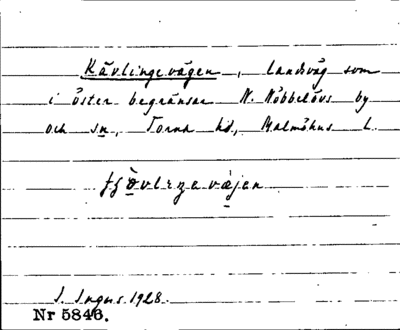 Kävlingevägen, landsväg som
i öster begränsar N. Nöbbelövs by
och sn, Torna hd, Malmöhus l.
J. Ingers 1928.
Nr 5846.